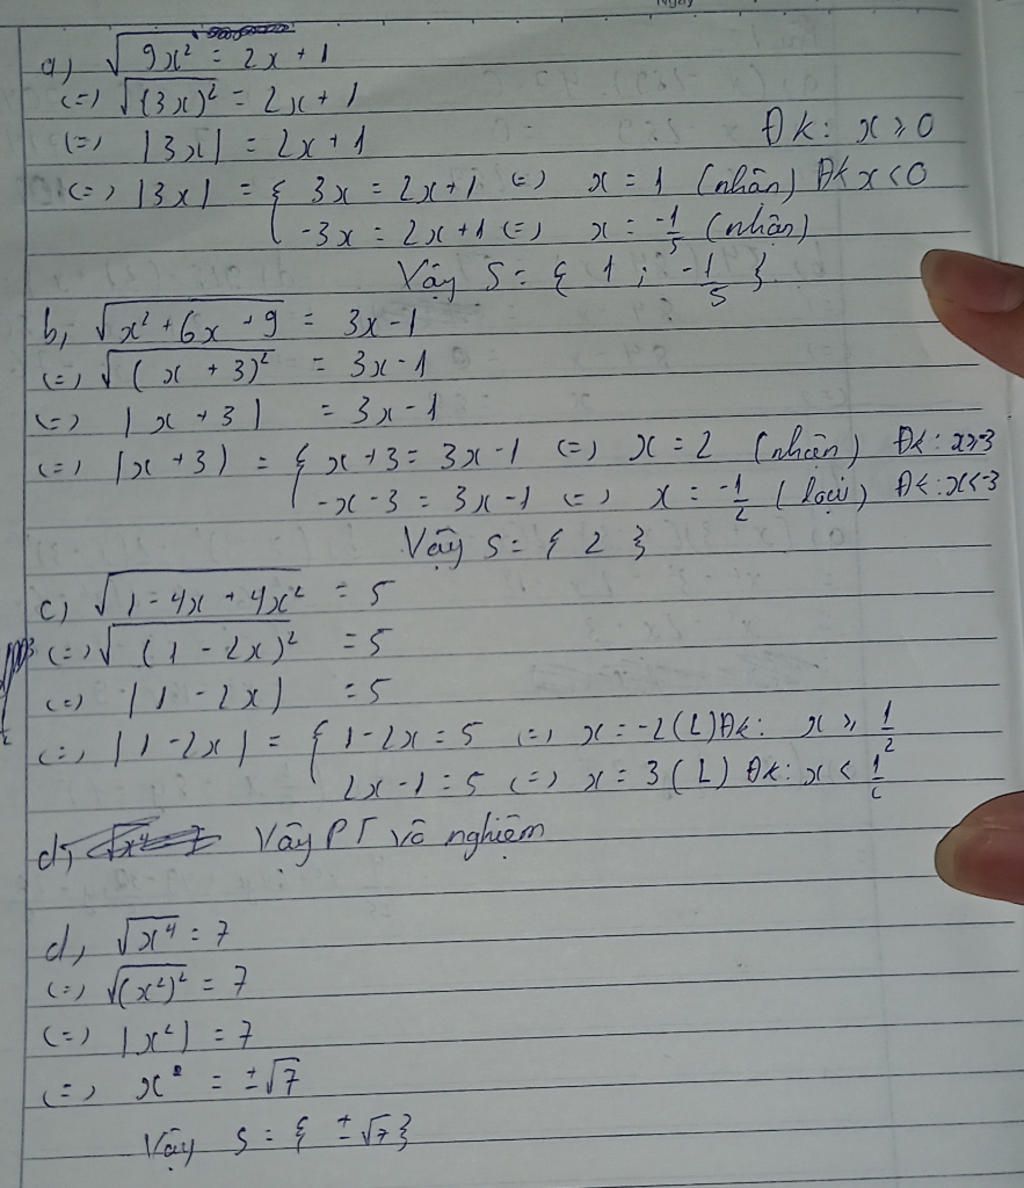 a) √9x² = 2x + 1
(=) √(3x)² = 2x + 1
(=) |3x| = 2x + 1 Đk: x ≥ 0
(=) |3x| = { 3x = 2x+1 (=) x = 1 (nhân) Đk x < 0
-3x = 2x+1 (=) x = -1/5 (nhận)
Vậy S = { 1 ; -1/5 }
b, √x² + 6x + 9 = 3x - 1
(=) √(x + 3)² = 3x - 1
(=) |x + 3| = 3x - 1
(=) |x + 3) = { x + 3 = 3x - 1 (=) x = 2 (nhận) Đk: x≥-3
-x - 3 = 3x - 1 (=) x = -1/2 (loại) Đk: x<-3
Vậy S = { 2 }
c) √1 - 4x + 4x² = 5
(=) √(1 - 2x)² = 5
(=) |1 - 2x| = 5
(=) |1 - 2x| = { 1 - 2x = 5 (=) x = -2 (L) Đk: x ≥ 1/2
2x - 1 = 5 (=) x = 3 (L) Đk: x < 1/2
d, Vậy PT vô nghiệm
d, √x⁴ = 7
(=) √(x²)² = 7
(=) |x²| = 7
(=) x = ±√7
Vậy S = { ±√7 }